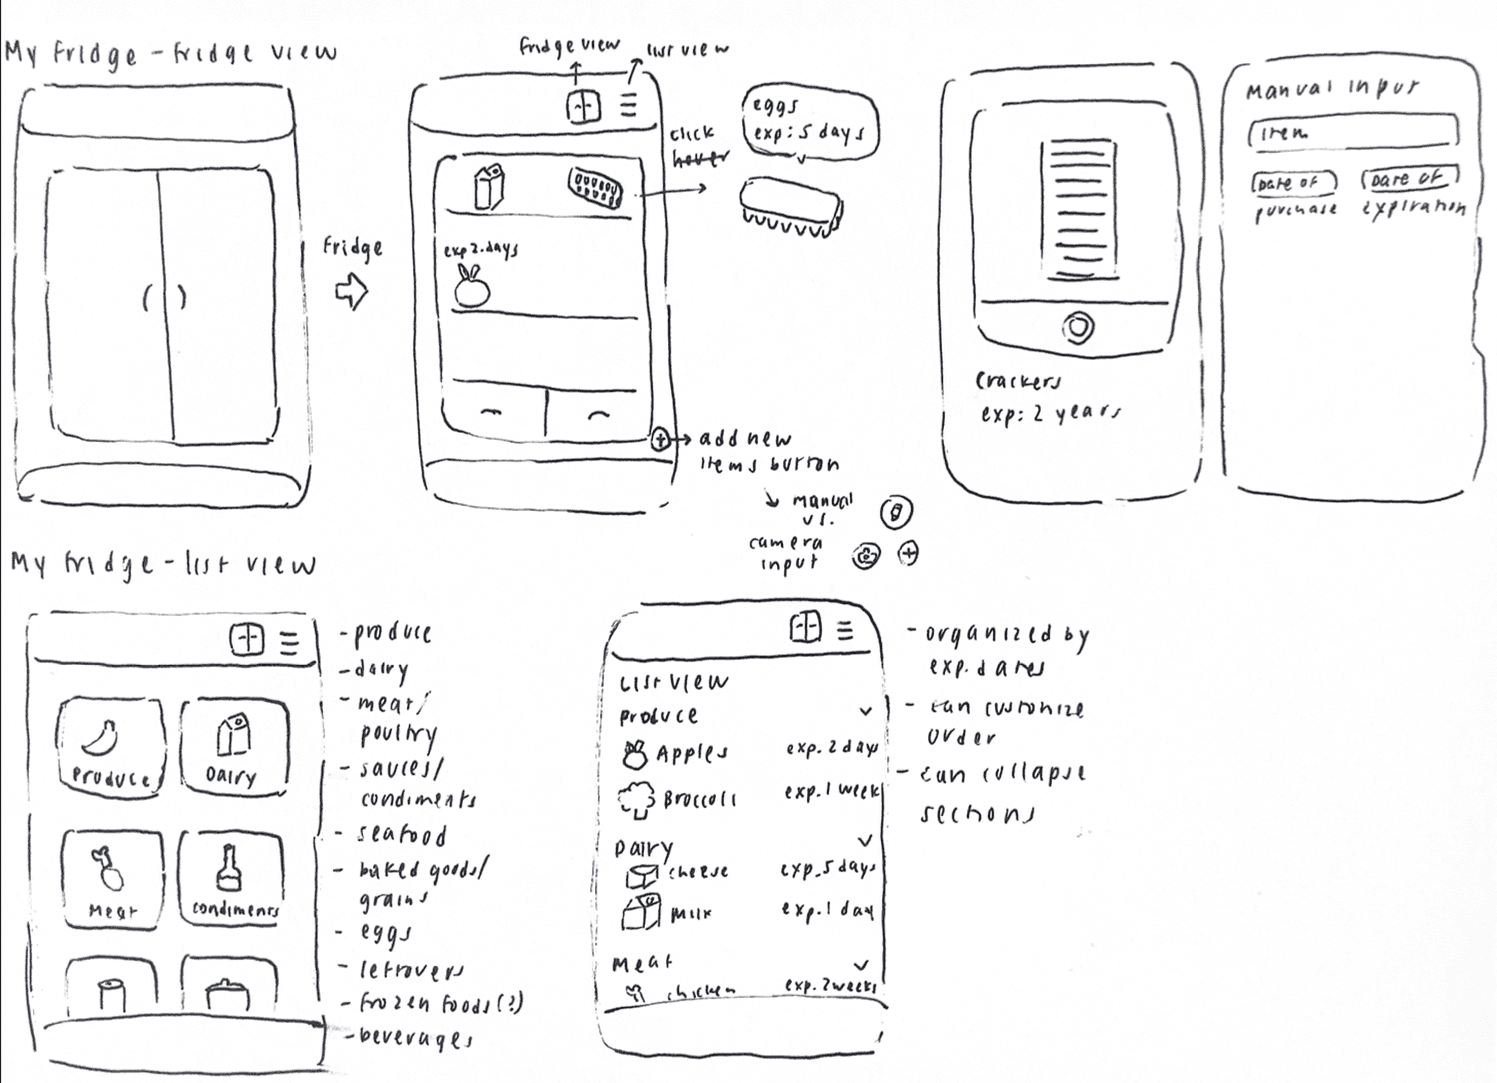 My fridge - fridge view
fridge view
list view
click
hover
eggs
exp: 5 days
fridge
exp 2.days
add new
items button
manual
vs.
camera
input
crackers
exp: 2 years
Manual input
item
Date of
purchase
Date of
expiration
My fridge - list view
produce
Dairy
Meat
condiments
- produce
- dairy
- meat/
poultry
- sauces/
condiments
- seafood
- baked goods/
grains
- eggs
- leftovers
- frozen foods(?)
- beverages
List view
produce
Apples exp. 2 days
Broccoli exp. 1 week
Dairy
cheese exp. 5 days
Milk exp. 1 day
Meat
chicken exp. 2 weeks
- organized by
exp. dates
- can customize
order
- can collapse
sections